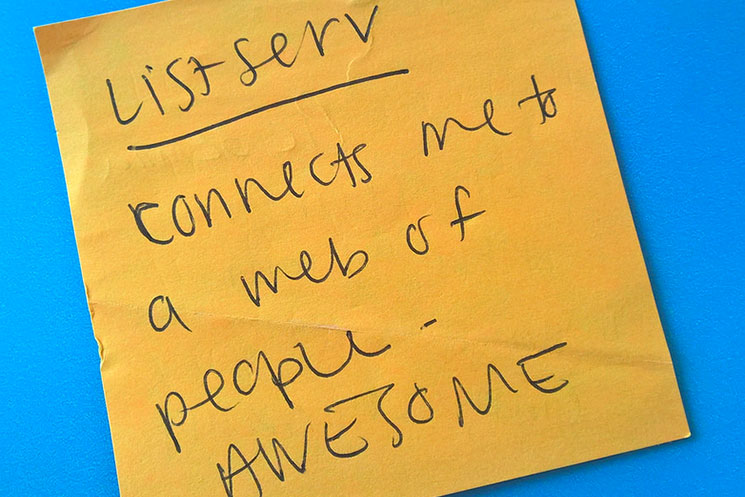 Listserv
connects me to
a web of
people -
AWESOME